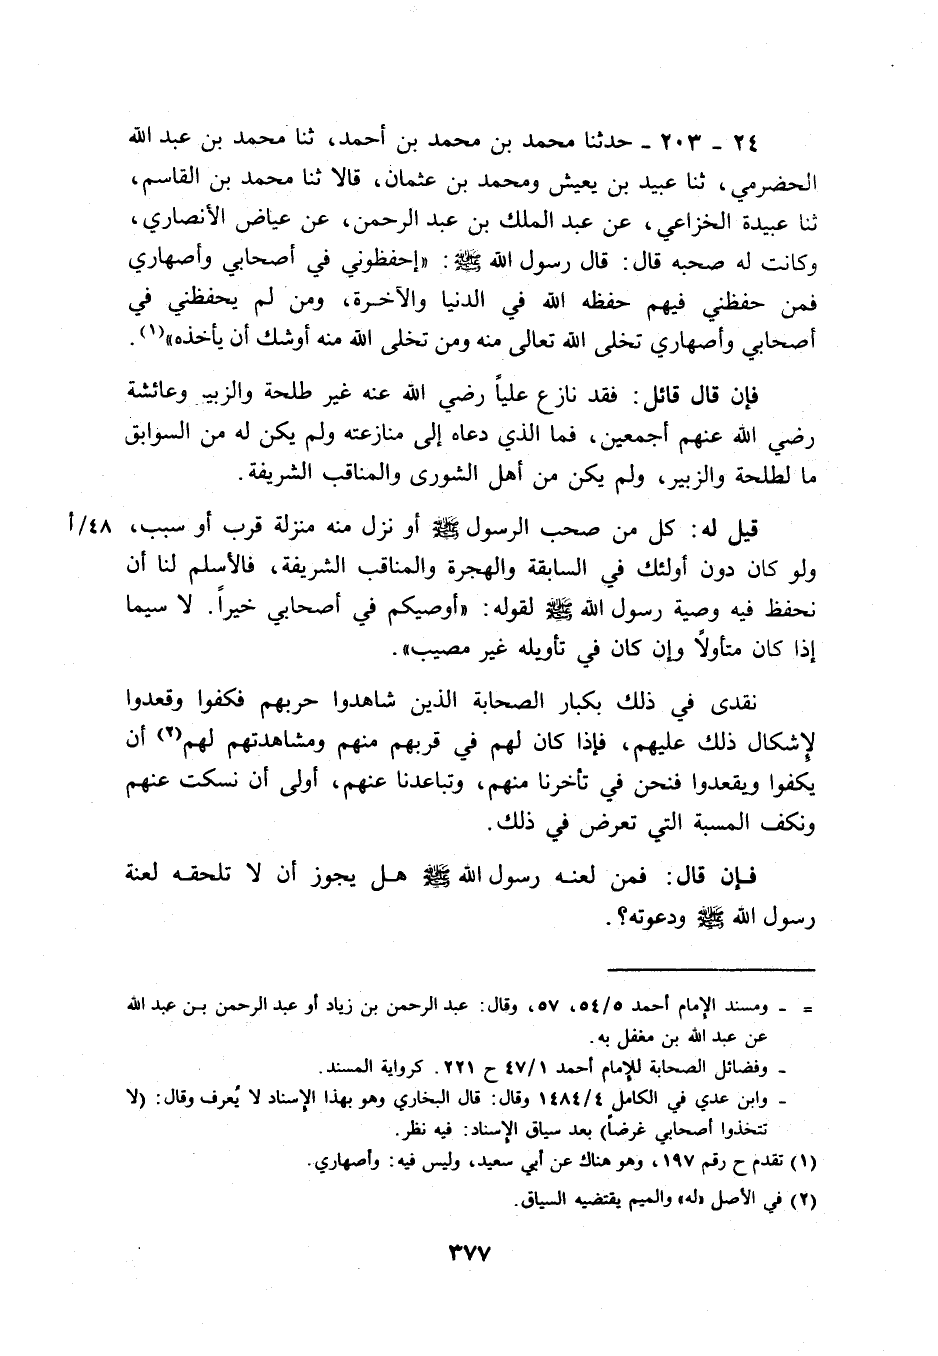 ٢٤ - ٢٠٣ - حدثنا محمد بن محمد بن أحمد، ثنا محمد بن عبد الله
الحضرمي، ثنا عبيد بن يعيش ومحمد بن عثمان، قالا ثنا محمد بن القاسم،
ثنا عبيدة الخزاعي، عن عبد الملك بن عبد الرحمن، عن عياض الأنصاري،
وكانت له صحبه قال: قال رسول الله ﷺ: «إحفظوني في أصحابي وأصهاري
فمن حفظني فيهم حفظه الله في الدنيا والآخرة، ومن لم يحفظني في
أصحابي وأصهاري تخلى الله تعالى منه ومن تخلى الله منه أوشك أن يأخذه»(١).
فإن قال قائل: فقد نازع علياً رضي الله عنه غير طلحة والزبير وعائشة
رضي الله عنهم أجمعين، فما الذي دعاه إلى منازعته ولم يكن له من السوابق
ما لطلحة والزبير، ولم يكن من أهل الشورى والمناقب الشريفة.
قيل له: كل من صحب الرسول ﷺ أو نزل منه منزلة قرب أو سبب، ٤٨/أ
ولو كان دون أولئك في السابقة والهجرة والمناقب الشريفة، فالأسلم لنا أن
نحفظ فيه وصية رسول الله ﷺ لقوله: «أوصيكم في أصحابي خيراً. لا سيما
إذا كان متأولاً وإن كان في تأويله غير مصيب».
نقدى في ذلك بكبار الصحابة الذين شاهدوا حربهم فكفوا وقعدوا
لإشكال ذلك عليهم، فإذا كان لهم في قربهم منهم ومشاهدتهم لهم(٢) أن
يكفوا ويقعدوا فنحن في تأخرنا منهم، وتباعدنا عنهم، أولى أن نسكت عنهم
ونكف المسبة التي تعرض في ذلك.
فإن قال: فمن لعنه رسول الله ﷺ هل يجوز أن لا تلحقه لعنة
رسول الله ﷺ ودعوته؟.
= - ومسند الإمام أحمد ٥٤/٥، ٥٧، وقال: عبد الرحمن بن زياد أو عبد الرحمن بن عبد الله
عن عبد الله بن مغفل به.
- وفضائل الصحابة للإمام أحمد ٤٧/١ ح ٢٢١. كرواية المسند.
- وابن عدي في الكامل ١٤٨٤/٤ وقال: قال البخاري وهو بهذا الإسناد لا يُعرف وقال: (لا
تتخذوا أصحابي غرضاً) بعد سياق الإسناد: فيه نظر.
(١) تقدم ح رقم ١٩٧، وهو هناك عن أبي سعيد، وليس فيه: وأصهاري.
(٢) في الأصل «له» والميم يقتضيه السياق.
٣٧٧